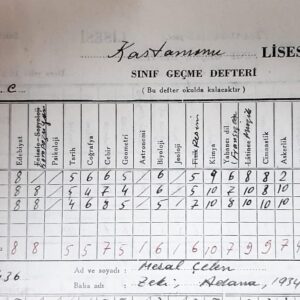 Kastamonu LİSES
SINIF GEÇME DEFTERİ
( Bu defter okulda kalacaktır )
C
Edebiyat
Psikoloji
Tarih
Coğrafya
Cebir
Geometri
Astronomi
Biyoloji
Jeoloji
Fizik Resim
Kimya
Yabancı dil
Lâtince Müzik
Cimnastik
Askerlik
8 8 / 5 6 6 5 / 6 / 5 9 6 8 8 2
8 8 / 5 4 7 4 / 6 / 8 10 7 10 8 10
8 8 / 4 6 8 5 / 5 / 7 10 8 10 10 10
8 8 / 5 5 7 5 / 6 / 6 10 7 9 9 7
436
Ad ve soyadı : Meral Çelen
Baba adı : Zeki, Adana, 1934